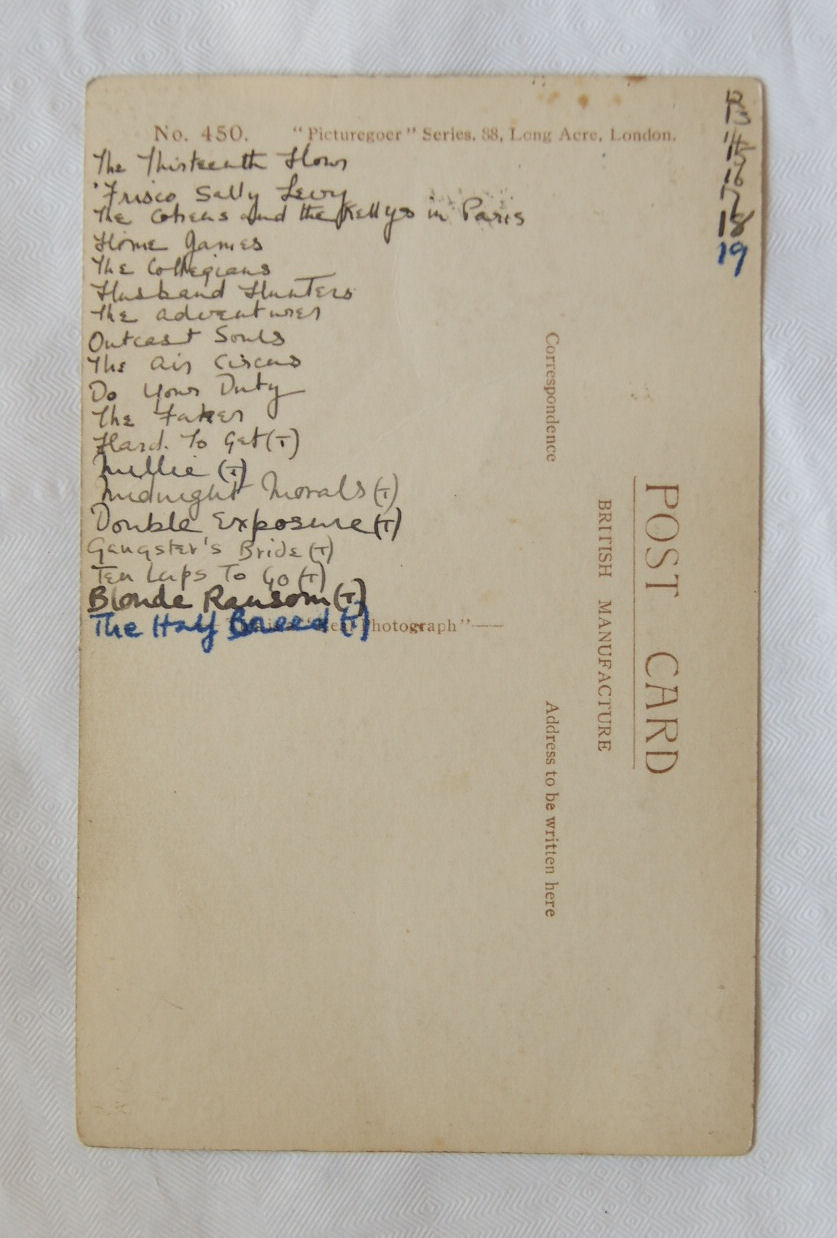 No. 450. "Picturegoer" Series, 88, Long Acre, London.
The Thirteenth Hour
'Frisco Sally Levy
The Cohens and the Kellys in Paris
Home James
The Collegians
Husband Hunters
The Adventurer
Outcast Souls
The Air Circus
Do Your Duty
The Faker
Hard To Get (T)
Millie (T)
Midnight Morals (T)
Double Exposure (T)
Gangster's Bride (T)
Ten Laps To Go (T)
Blonde Ransom (T)
The Half Breed (T)
Photograph"
13
15
16
17
18
19
Correspondence
Address to be written here
BRITISH MANUFACTURE
POST CARD